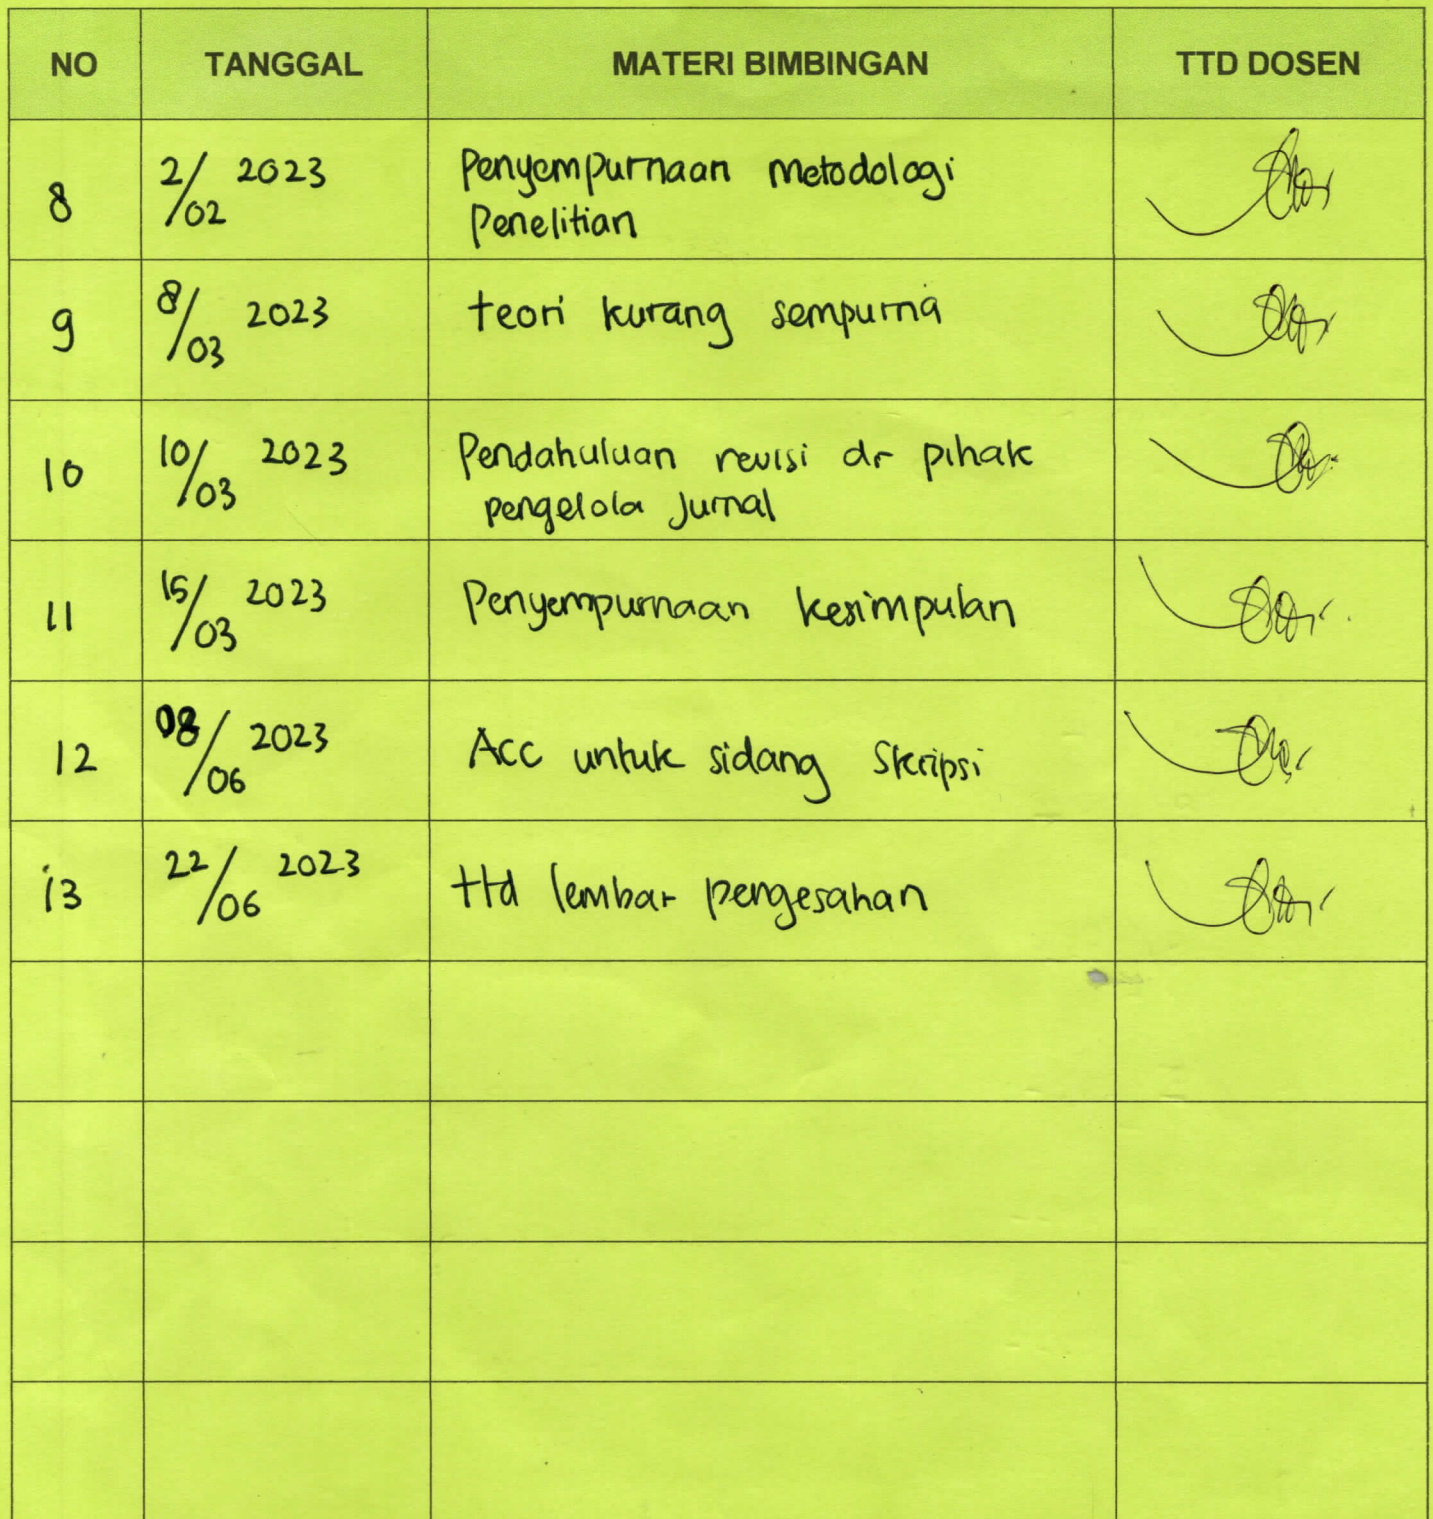 NO TANGGAL MATERI BIMBINGAN TTD DOSEN
8 2/02 2023 Penyempurnaan metodologi
Penelitian
9 8/03 2023 teori kurang sempurna
10 10/03 2023 Pendahuluan revisi dr pihak
pengelola Jurnal
11 15/03 2023 Penyempurnaan kesimpulan
12 08/06 2023 Acc untuk sidang Skripsi
13 22/06 2023 ttd lembar pengesahan